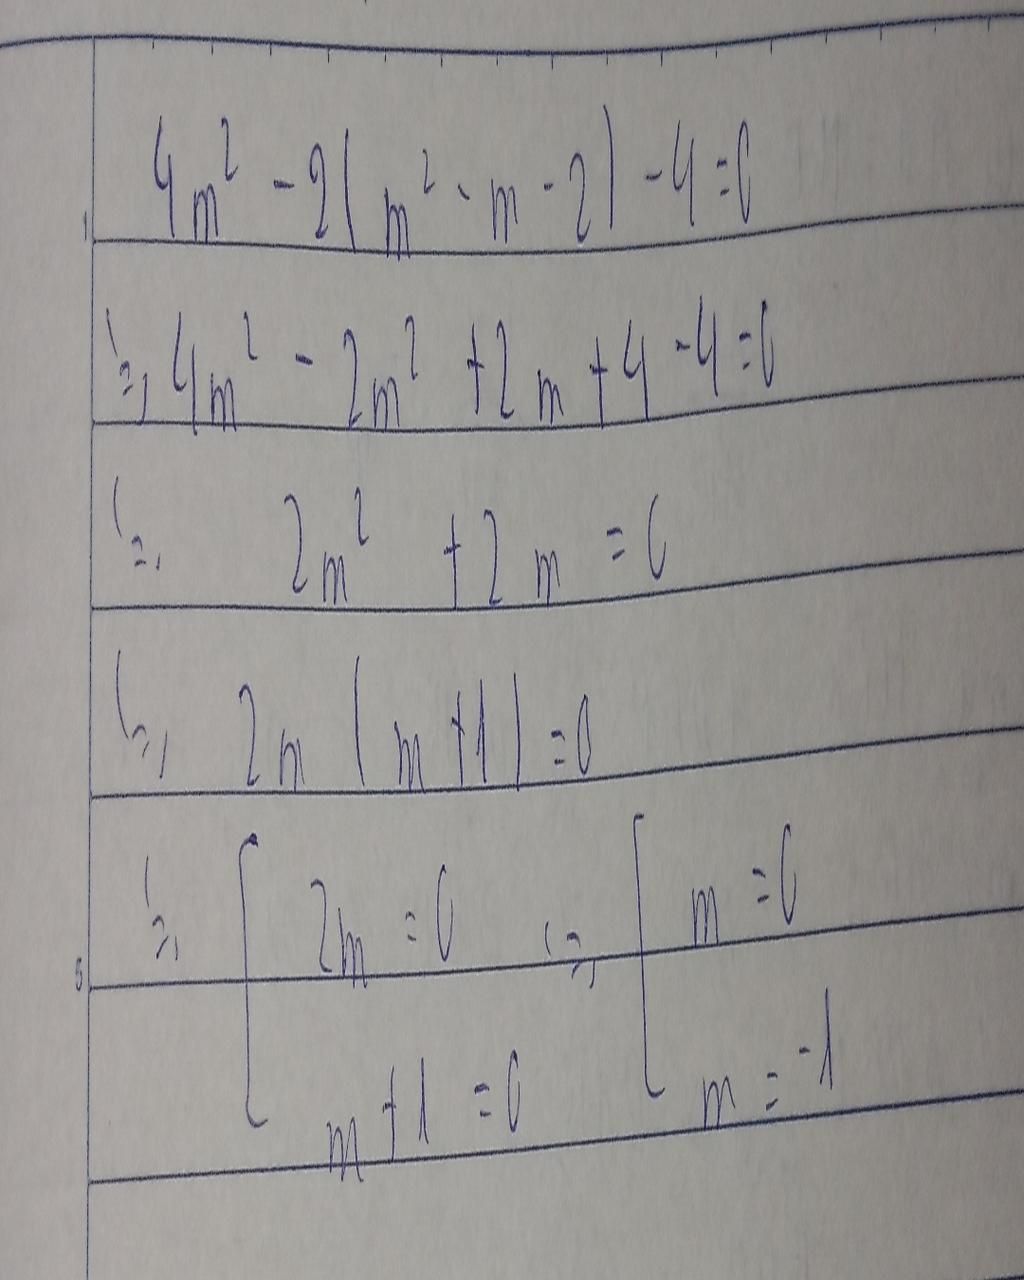 4m² - 2(m² - m - 2) - 4 = 0
⇔ 4m² - 2m² + 2m + 4 - 4 = 0
⇔ 2m² + 2m = 0
⇔ 2m (m + 1) = 0
⇔ [ 2m = 0 ⇔ [ m = 0
m + 1 = 0 m = -1